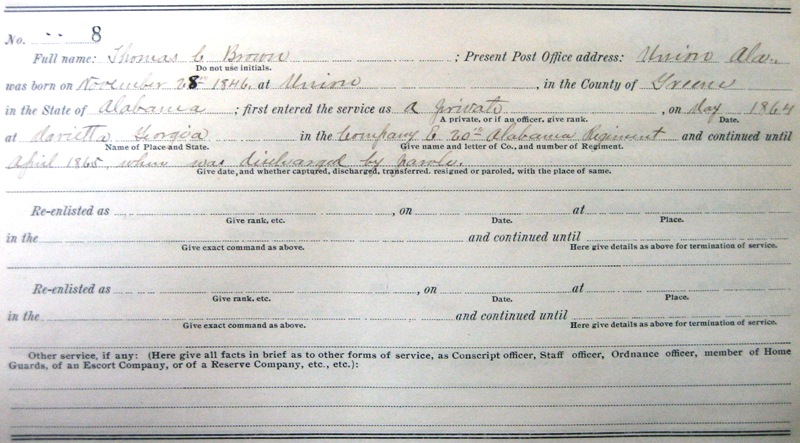 No. 8
Full name: Thomas C Brown ; Present Post Office address: Union Ala.
Do not use initials.
was born on November 28th 1846. at Union , in the County of Greene
in the State of Alabama ; first entered the service as a private , on Day 1864
A private, or if an officer, give rank. Date.
at Marietta Georgia in the Company E 20th Alabama Regiment and continued until
Name of Place and State. Give name and letter of Co., and number of Regiment.
April 1865, when was discharged by parole.
Give date, and whether captured, discharged, transferred. resigned or paroled, with the place of same.
Re-enlisted as , on at
Give rank, etc. Date. Place.
in the and continued until
Give exact command as above. Here give details as above for termination of service.
Re-enlisted as , on at
Give rank, etc. Date. Place.
in the and continued until
Give exact command as above. Here give details as above for termination of service.
Other service, if any: (Here give all facts in brief as to other forms of service, as Conscript officer, Staff officer, Ordnance officer, member of Home
Guards, of an Escort Company, or of a Reserve Company, etc., etc.):